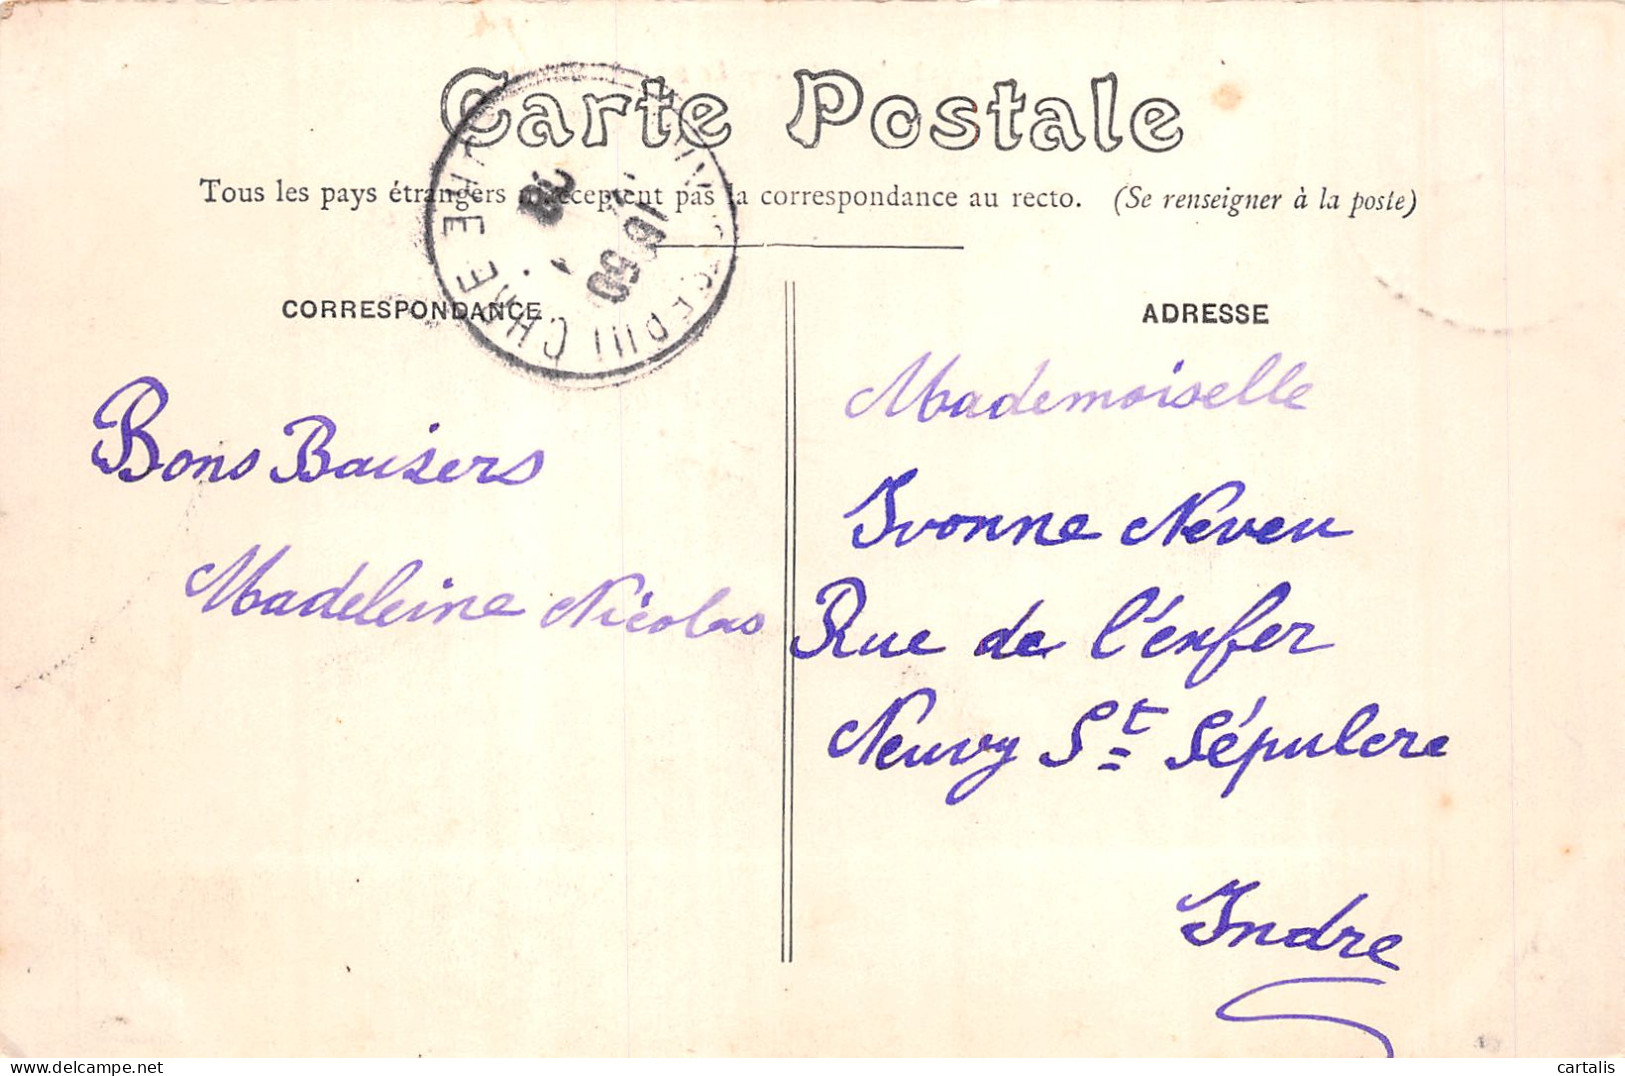 Carte Postale
Tous les pays étrangers n'acceptent pas la correspondance au recto. (Se renseigner à la poste)
16 50
CORRESPONDANCE
ADRESSE
Bons Baisers
Madeleine Nicolas
Mademoiselle
Yvonne Neveu
Rue de l'enfer
Neuvy St Sépulcre
Indre
cartalis